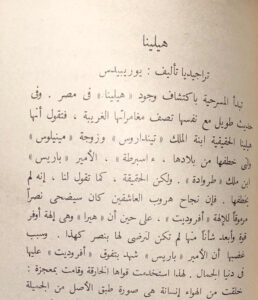 هيلينا
تراجيديا تأليف : يوريبيدس
تبدأ المسرحية باكتشاف وجود « هيلينا » فى مصر . وفى
حديث طويل مع نفسها تصف مغامراتها الغريبة ، فتقول أنها
الحقيقية ابنة الملك « تينداروس » وزوجة « مينيلوس »
خطفها من بلادها ، « اسبرطة » . الأمير « باريس »
ابن ملك « طروادة » . ولكن الحقيقة ، كما تقول لنا ، إنه لم
يخطفها . فإن نجاح هروب العاشقين كان سيضحى نصراً
للإلهة « أفروديت » ، على حين أن « هيرا » وهى إلهة أوفر
قوة وأبعد شأناً منها لم تكن لترضى لها بنصر كهذا . وسبب
غضبها أن الأمير « باريس » شهد بتفوق « أفروديت » عليها
فى دنيا الجمال . لهذا استخدمت قواها الخارقة وقامت بمعجزة :
خلقت من الهواء إنسانة هى صورة طبق الأصل من الجميلة